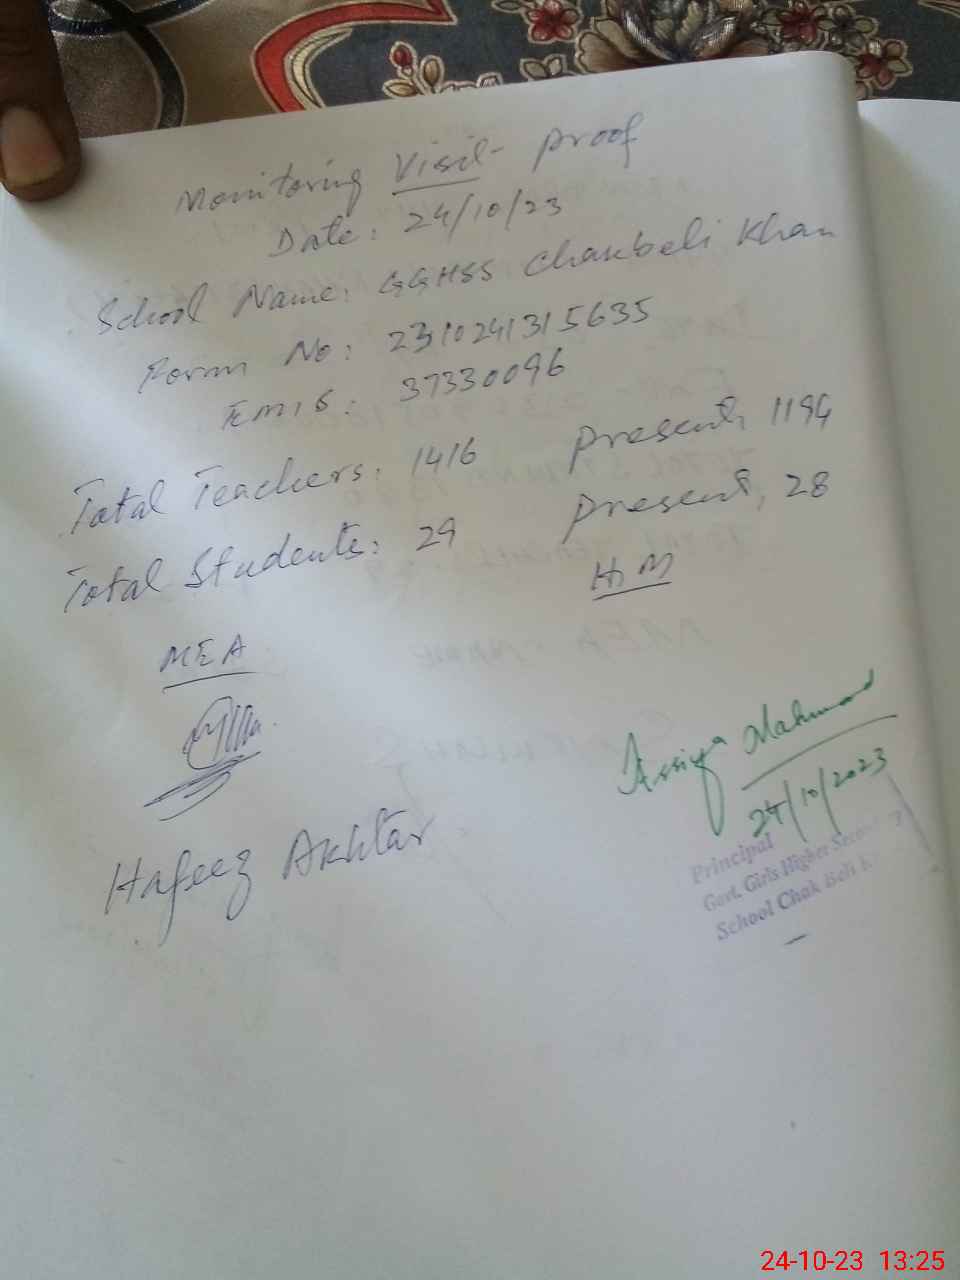 Monitoring Visit Proof
Date: 24/10/23
School Name: GGHSS Chakbeli Khan
Form No: 2310241315635
EMIS: 37330096
Total Teachers: 1416 Present, 1194
Total Students: 29 Present, 28
HM
MEA
Hafeez Akhtar
Assiya Mahmood
24/10/2023
Principal
Govt. Girls Higher
School Chak Beli
24-10-23 13:25